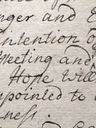 nger and E
Intention of
Meeting and
Hope will
ppointed to
ness.